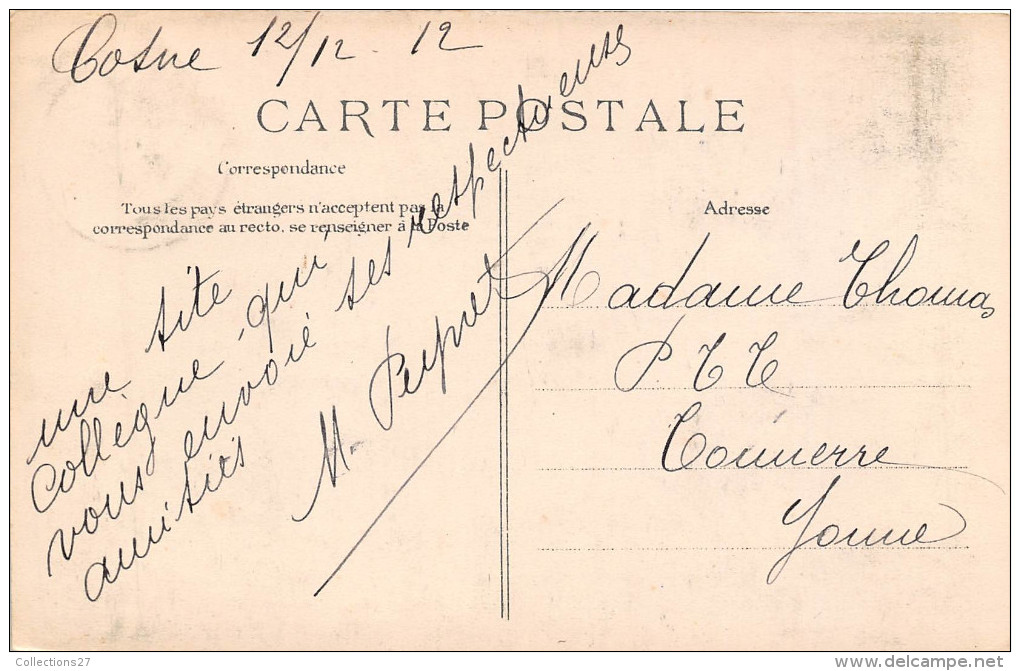 Cosne 12/12 - 12
CARTE POSTALE
Correspondance
Tous les pays étrangers n'acceptent pas la
correspondance au recto, se renseigner à la Poste
une site
Collègue qui
vous envoie ses respectueuses
amitiés
M. Peypret
Adresse
Madame Thomas
P. T. T
Tonnerre
Yonne
Collections27
http://collections27.delcampe.net